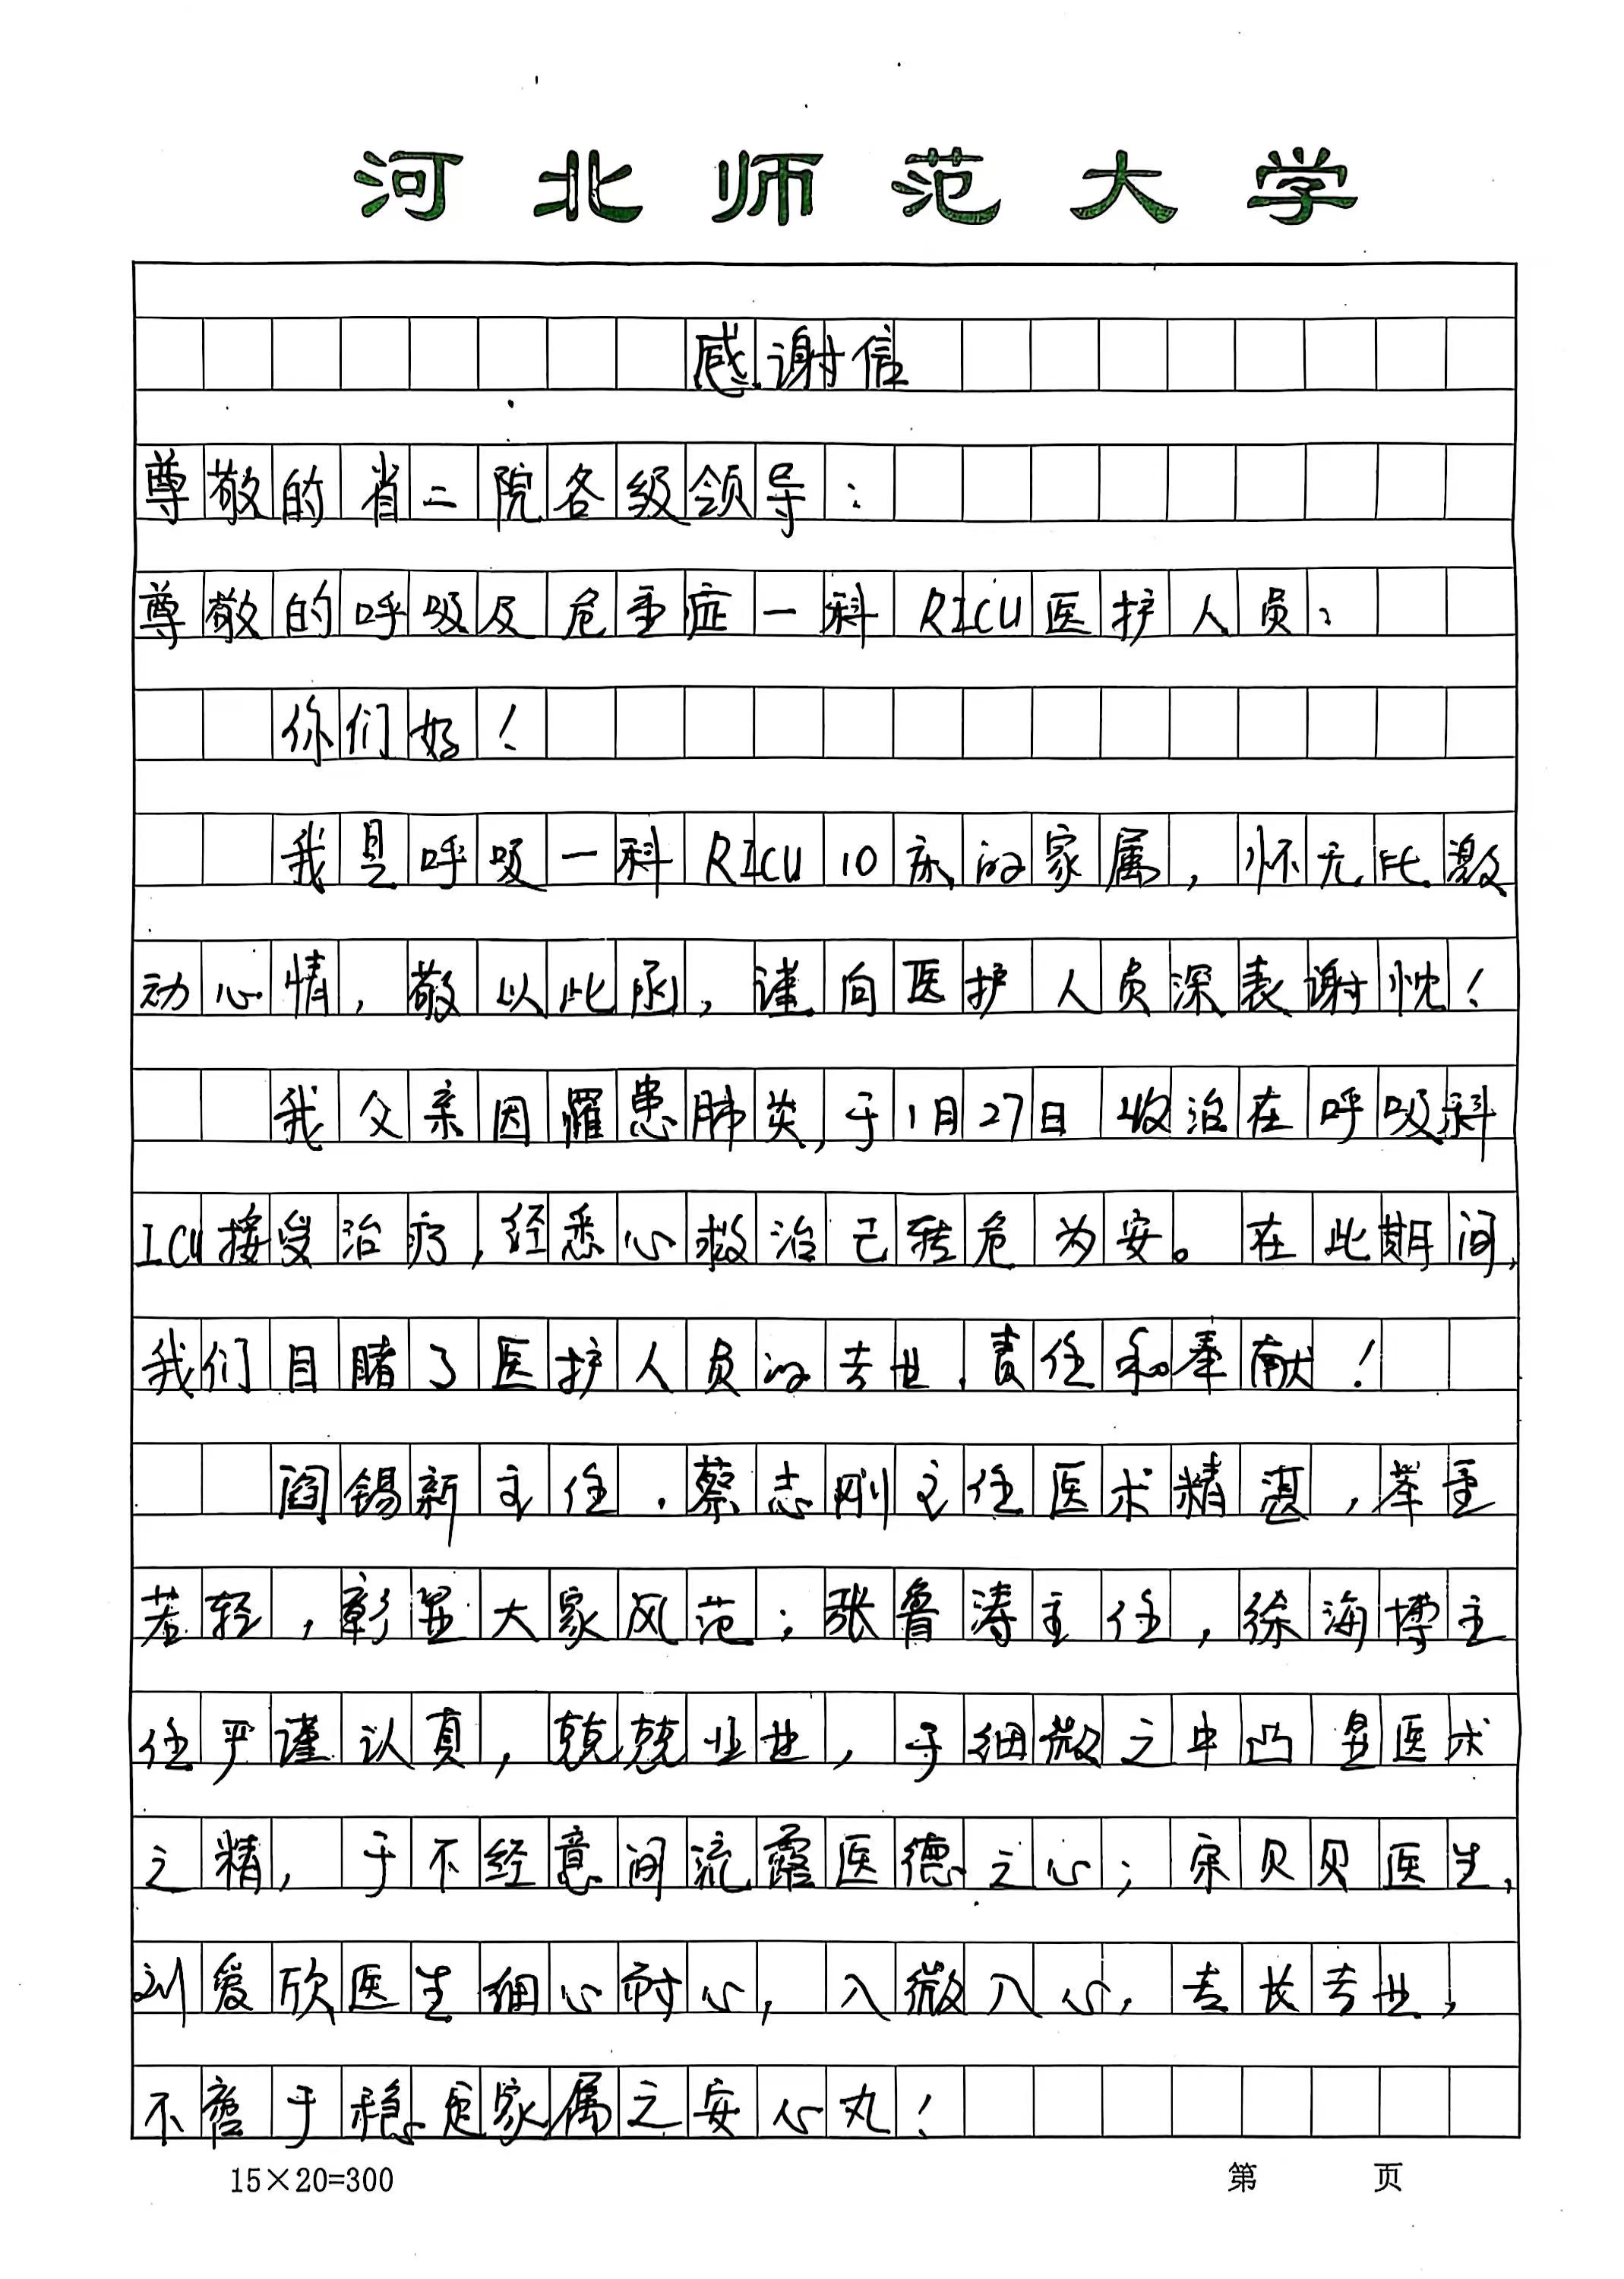 河北师范大学
感谢信
尊敬的省二院各级领导：
尊敬的呼吸及危重症一科RICU医护人员：
你们好！
我是呼吸一科RICU10床的家属，怀无比激
动心情，敬以此函，谨向医护人员深表谢忱！
我父亲因罹患肺炎，于1月27日收治在呼吸科
ICU接受治疗，经悉心救治已转危为安。在此期间，
我们目睹了医护人员的专业、责任和奉献！
阎锡新主任、蔡志刚主任医术精湛，举重
若轻，彰显大家风范；张鲁涛主任，徐海博主
任严谨认真，兢兢业业，于细微之中凸显医术
之精，于不经意间流露医德之心；宋贝贝医生，
刘爱欣医生细心耐心，入微入心，专长专业，
不啻于稳定家属之安心丸！
15×20=300
第 页